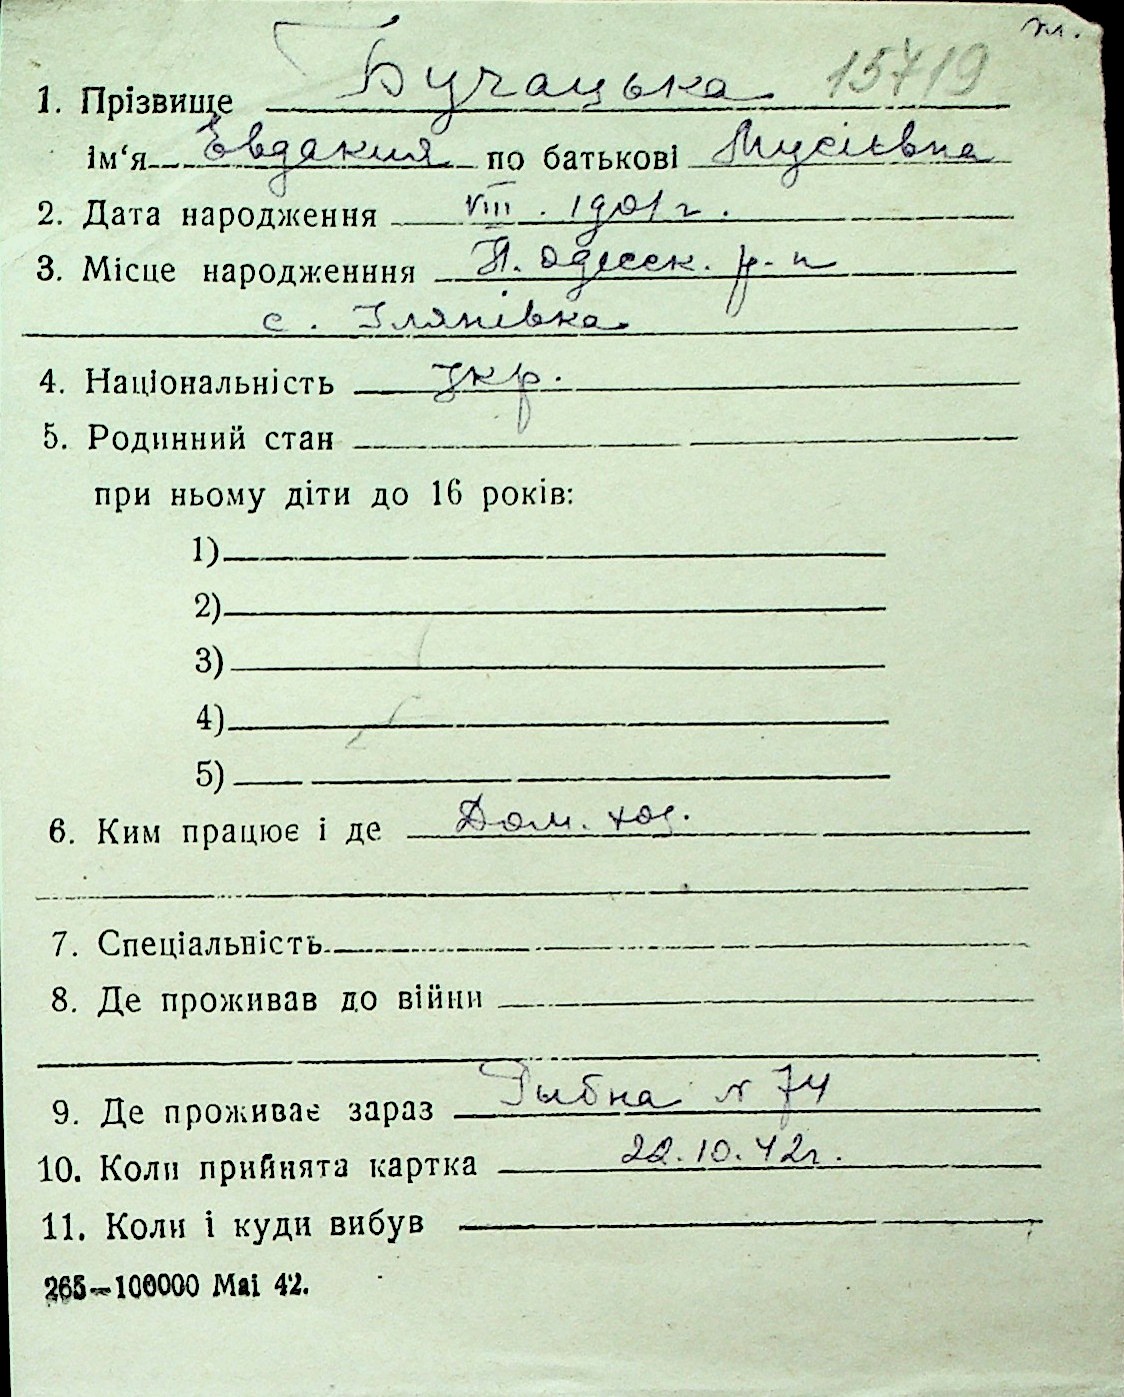 Бучацька 15419
1. Прізвище
ім‘я Евдакия по батькові Мусієвна
2. Дата народження VIII. 1901 г.
3. Місце народженння П. Одесск. р-н
с. Іляпівка
4. Національність Укр.
5. Родинний стан
при ньому діти до 16 років:
1)
2)
3)
4)
5)
6. Ким працює і де Дом. хоз.
7. Спеціальність
8. Де проживав до війни
9. Де проживає зараз Рыбна № 74
10. Коли прийнята картка 22.10.42г.
11. Коли і куди вибув
265—100000 Mai 42.